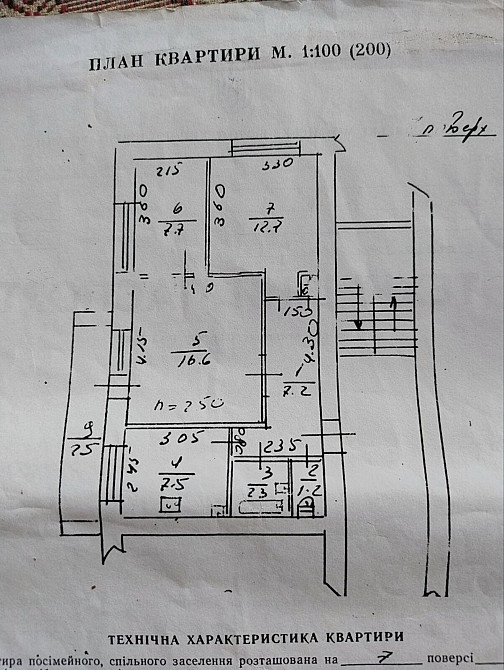 ПЛАН КВАРТИРИ М. 1:100 (200)
поверх
215
530
360
6
7.7
360
7
12.7
150
4.15
5
16.6
4.30
1
7.2
h=250
9
2.5
305
235
2.45
4
7.5
3
2.3
2
1.2
ТЕХНІЧНА ХАРАКТЕРИСТИКА КВАРТИРИ
посімейного, спільного заселення розташована на 7 поверсі